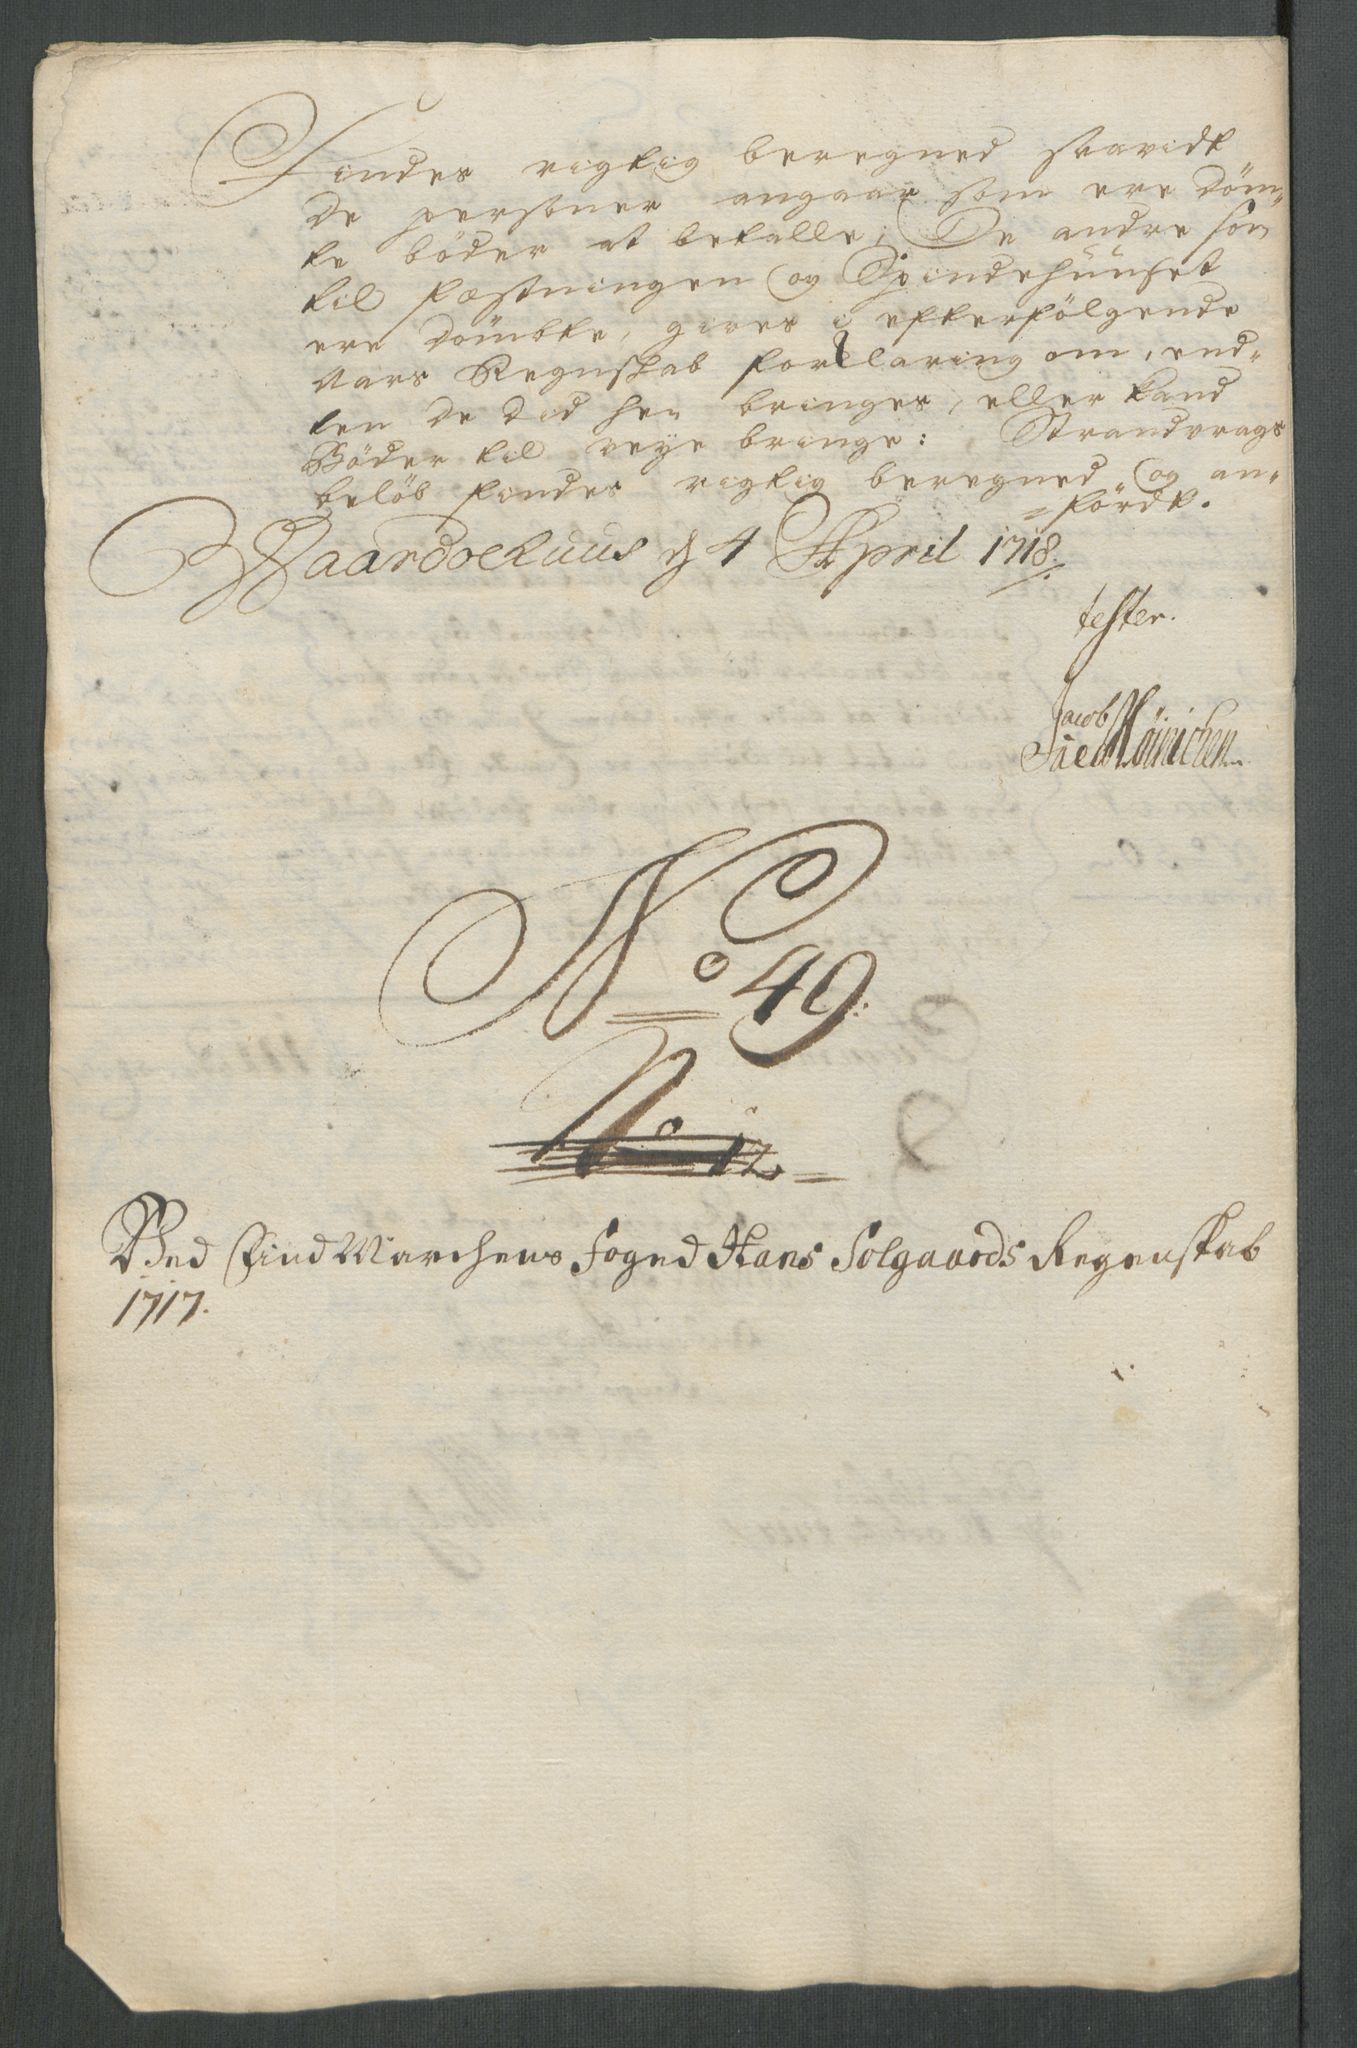 Findes rigtig beregned saavidt
de personer angaar som ere döm-
te böder at betalle, De andre som
til Fæstningen og Spindehuuset
ere dömbte, gives i efterfölgende
Aars Regnskab forklaring om, end-
ten de did hen bringes, eller kand
Böder til veye bringe: Strandvrags
belöb findes rigtig beregned og an-
= fördt.
Waardoehuus d 4 April 1718.
tester.
Jacob
No 49.
No 12
Ved FindMarchens Foged Hans Solgaards Regenskab
1717.